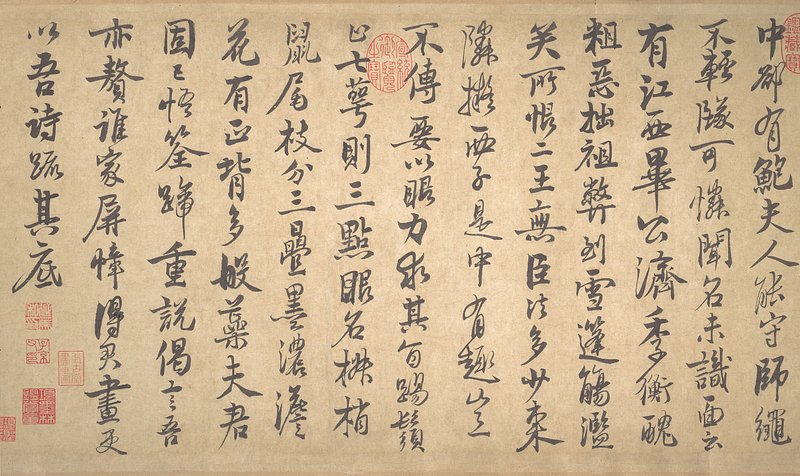 中郤有鮑夫人能守師繩
不輕墜可憐聞名未識面云
有江西畢公濟季衡醜
粗惡拙祖弊到雪篷觴濫
矣所恨二王無臣法多少東
鄰擬西子是中有趣豈
不傳要以眼力求其旨踢鬚
止七萼則三點眼名椒梢
鼠尾枝分三疊墨濃澹
花有正背多般蘂夫君
固已悟筌蹄重說偈言吾
亦贅誰家屏幛得君畫更
以吾詩疏其底
宣統御覽之寶